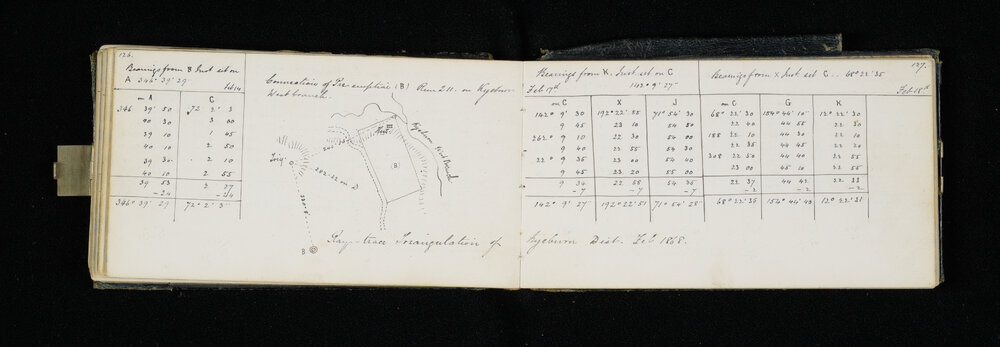 126.
Bearings from B Inst set on
A 346° 39' 29"
Feb 14
on A C
346 39' 50 72 2' 3
40 30 3 00
39 10 1 45
40 10 2 50
39 30 2 10
40 10 2 55
39 53 2 27
-24 -24
346° 39' 29 72° 2' 3"
Connection of Pre-emptive (B) Run 211. on Kyeburn
West branch.
Kyeburn West Branch
Trig
(B)
B
Ray-trace Triangulation of Kyeburn Dist. Feb 1868.
127.
Bearings from K. Inst set on C
Feb 17th 142° 9' 27"
on C X J
142° 9' 30 192° 22' 55 71° 54' 30
9 45 23 10 54 50
262° 9 10 22 30 54 00
9 40 22 55 54 30
22° 9 35 23 00 54 40
9 45 23 20 55 00
9 34 22 58 54 35
-7 -7 -7
142° 9' 27 192° 22' 51 71° 54' 28"
Bearings from X Inst set C .. 68° 22' 35
Feb 18th
on C G K
68° 22' 30 154° 44' 10" 12° 22' 30
22 40 44 55 22 50
188 22 10 44 30 22 10
22 35 44 45 22 20
308 22 50 44 40 22 55
23 00 45 10 22 55
22 37 44 42 22 33
-2 -2 -2
68° 22' 35 154° 44' 40 12° 22' 31